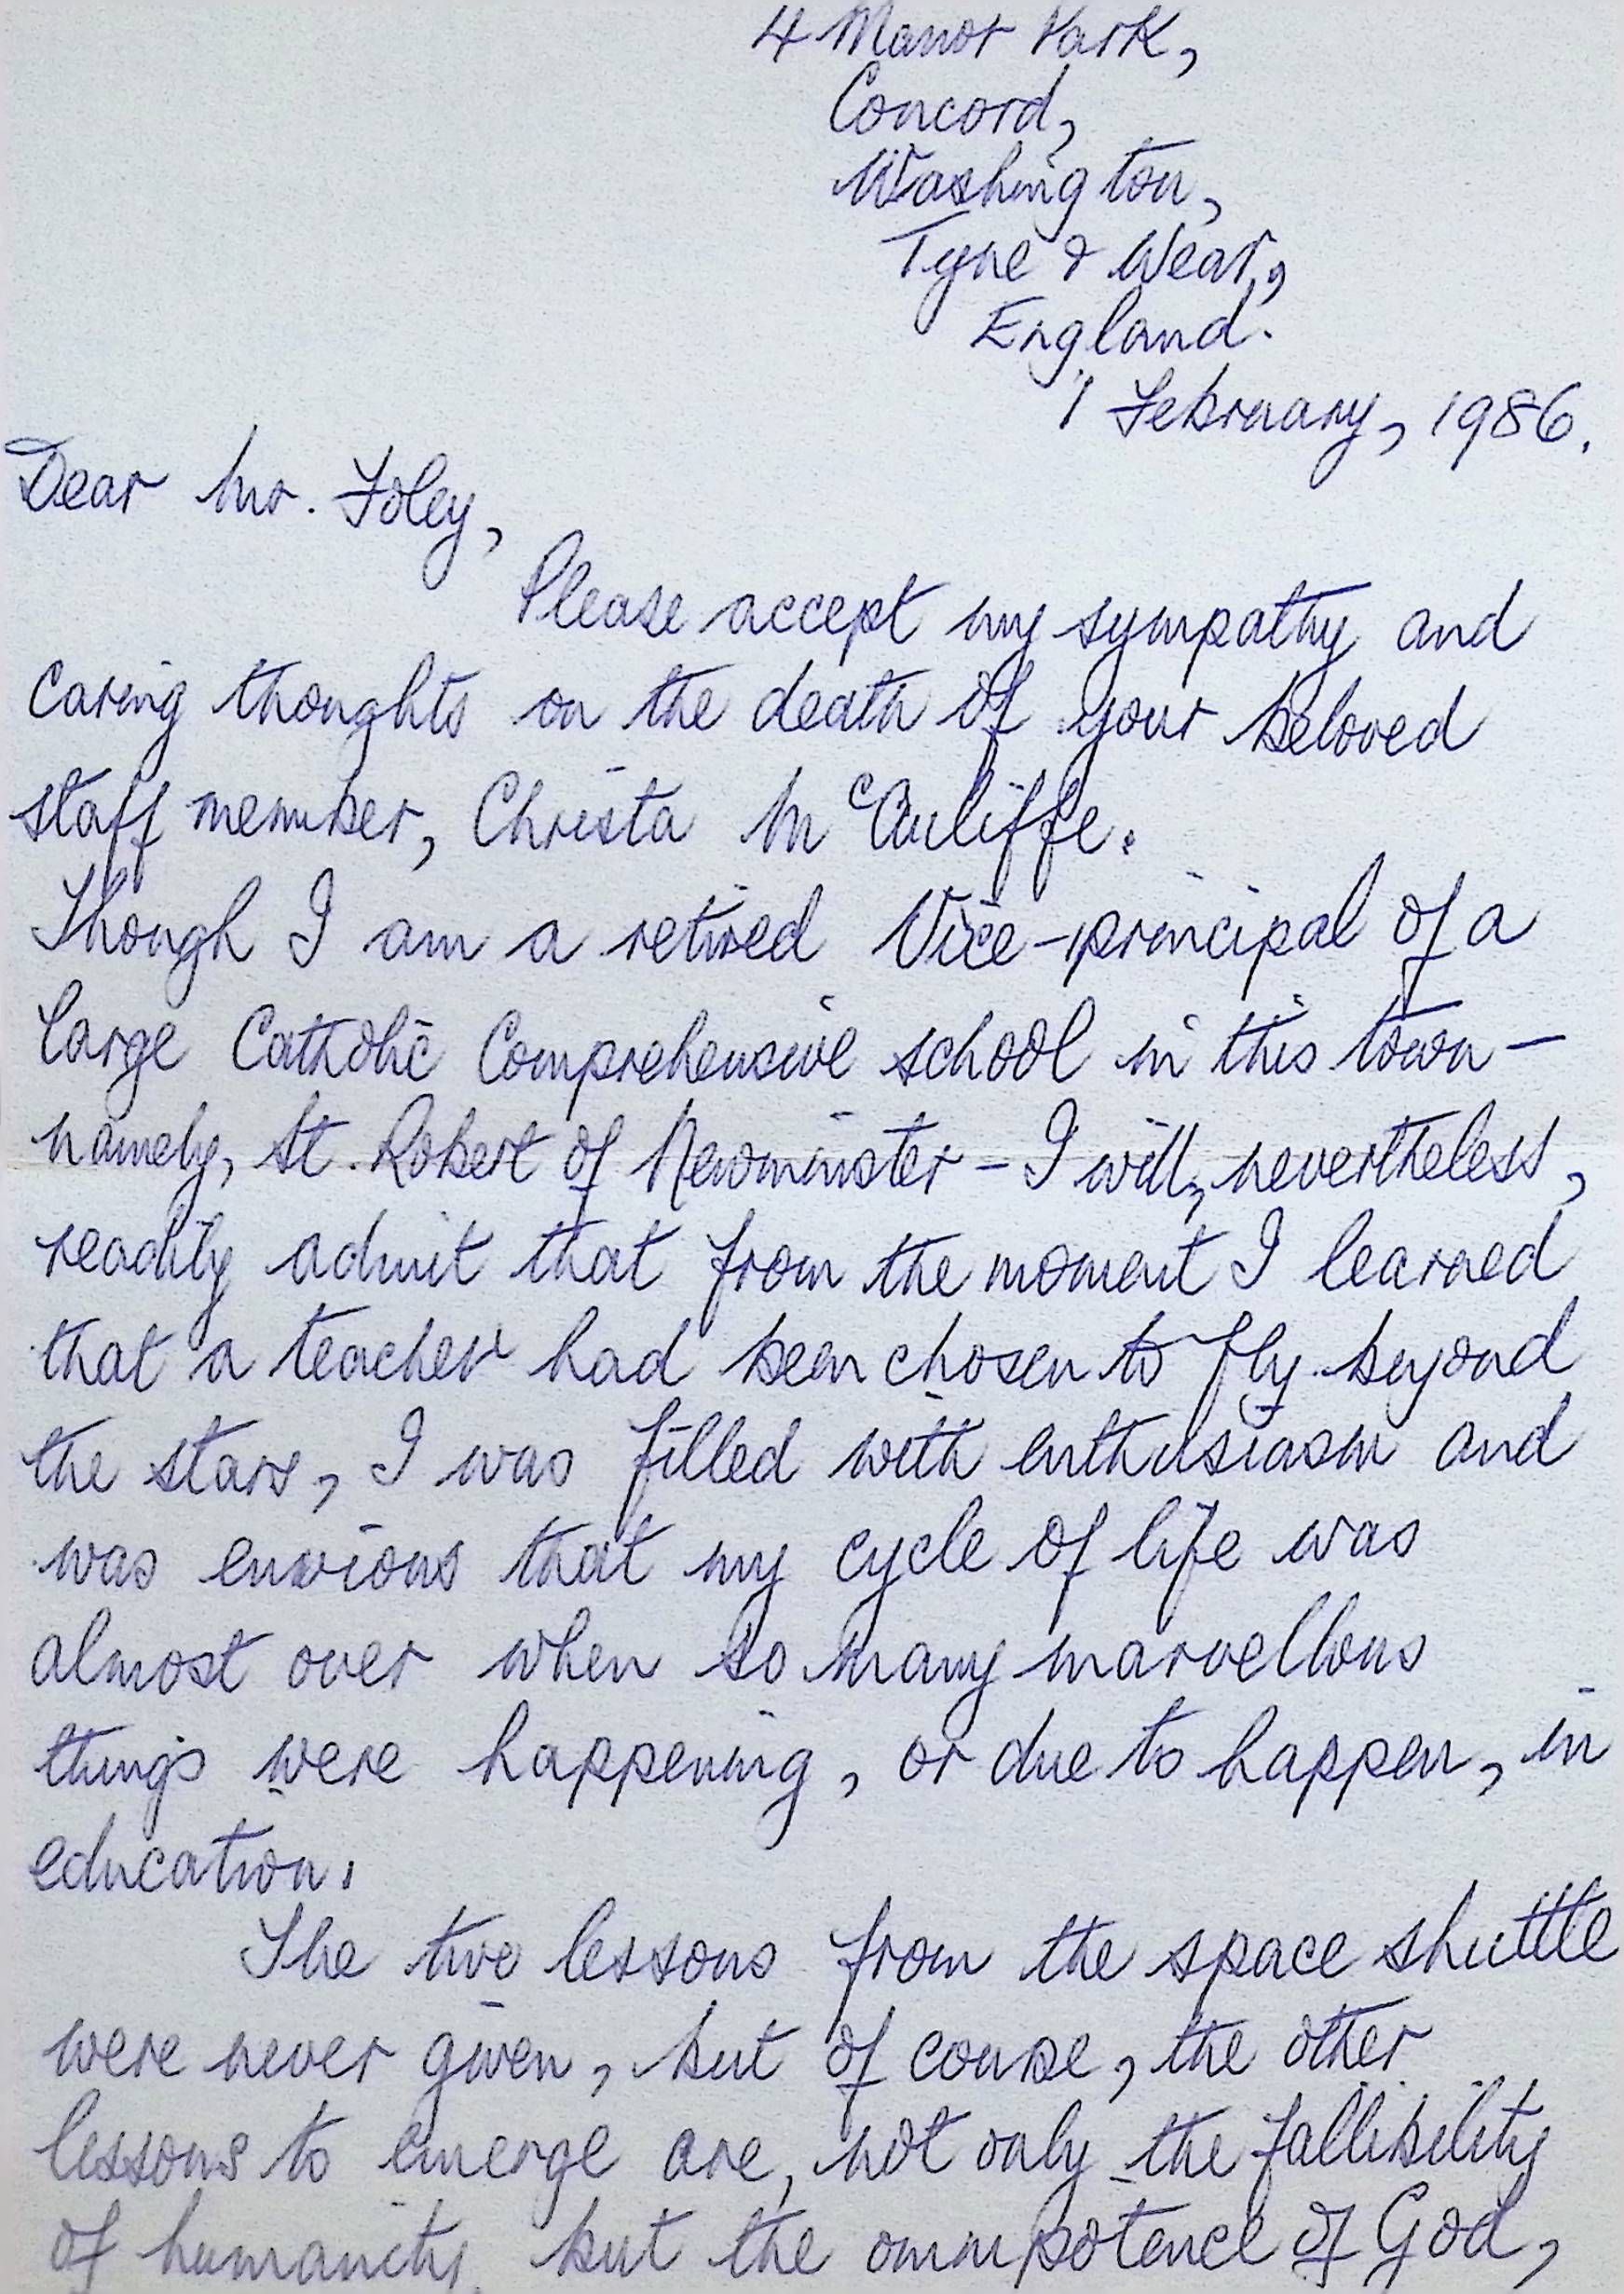 4 Manor Park,
Concord,
Washington,
Tyne & Wear,
England.
1 February, 1986.
Dear Mr. Foley,
Please accept my sympathy and
caring thoughts on the death of your beloved
staff member, Christa McAuliffe.
Though I am a retired Vice-principal of a
large Catholic Comprehensive school in this town -
namely, St. Robert of Newminster - I will, nevertheless,
readily admit that from the moment I learned
that a teacher had been chosen to fly beyond
the stars, I was filled with enthusiasm and
was envious that my cycle of life was
almost over when so many marvellous
things were happening, or due to happen, in
education.
The two lessons from the space shuttle
were never given, but of course, the other
lessons to emerge are, not only the fallibility
of humanity, but the omnipotence of God,